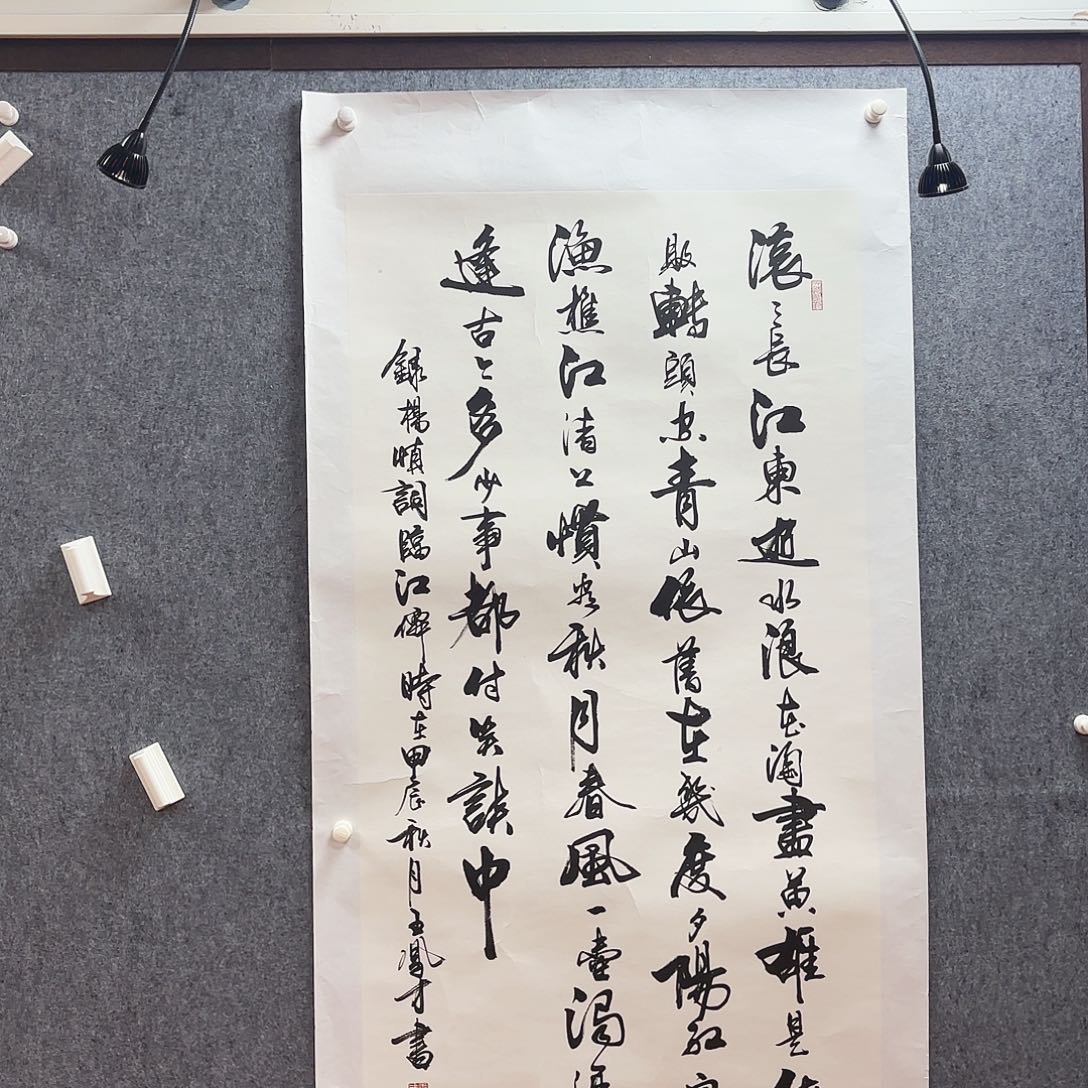 滚々長江東逝水浪花淘盡英雄是
敗轉頭空青山依舊在幾度夕陽紅
漁樵江渚上慣看秋月春風一壺濁
逢古今多少事都付笑談中
錄楊慎詞臨江僊時在甲辰秋月王鳳才書